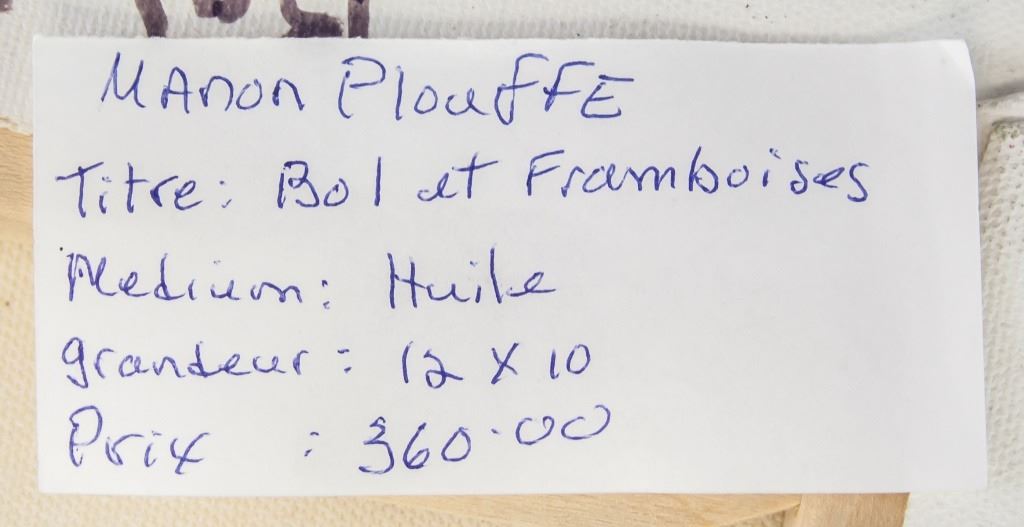 Manon Plouffe
Titre: Bol et Framboises
Medium: Huile
grandeur: 12 x 10
Prix : 360.00